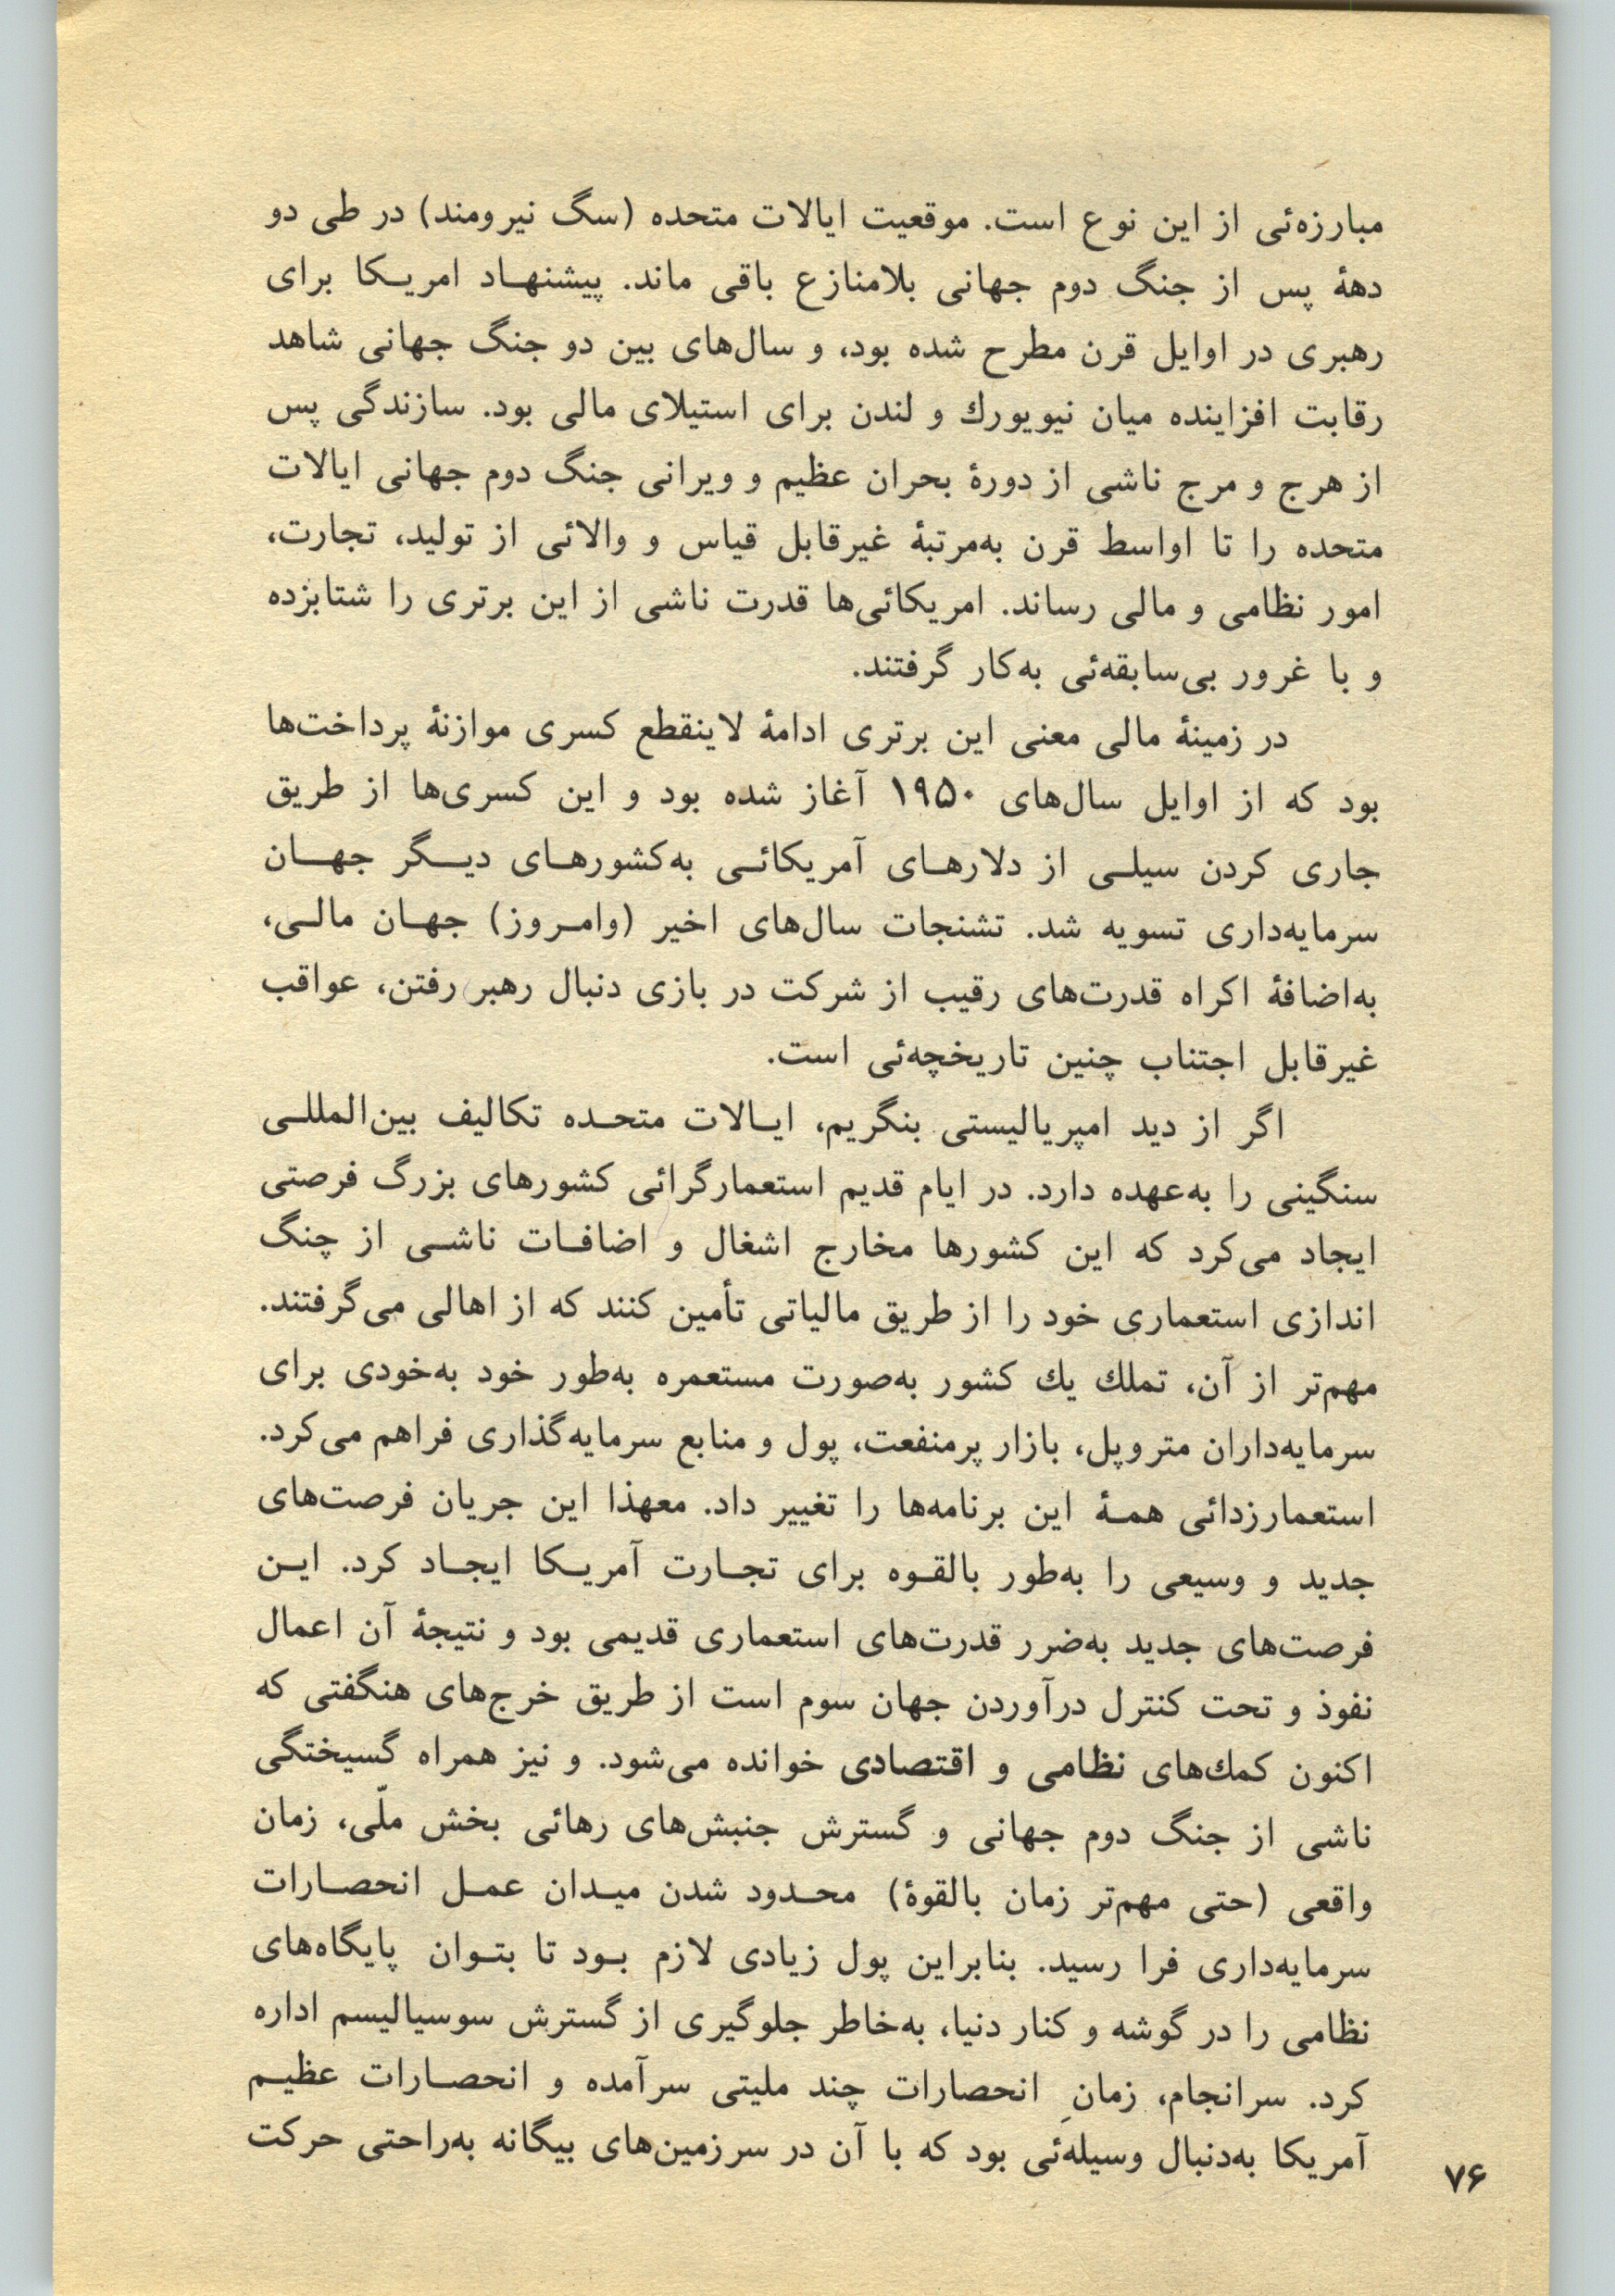 مبارزه‌ئی از این نوع است. موقعیت ایالات متحده (سگ نیرومند) در طی دو
دههٔ پس از جنگ دوم جهانی بلامنازع باقی ماند. پیشنهاد امریکا برای
رهبری در اوایل قرن مطرح شده بود، و سال‌های بین دو جنگ جهانی شاهد
رقابت افزاینده میان نیویورك و لندن برای استیلای مالی بود. سازندگی پس
از هرج و مرج ناشی از دورهٔ بحران عظیم و ویرانی جنگ دوم جهانی ایالات
متحده را تا اواسط قرن به‌مرتبهٔ غیرقابل قیاس و والائی از تولید، تجارت،
امور نظامی و مالی رساند. امریکائی‌ها قدرت ناشی از این برتری را شتابزده
و با غرور بی‌سابقه‌ئی به‌کار گرفتند.
در زمینهٔ مالی معنی این برتری ادامهٔ لاینقطع کسری موازنهٔ پرداخت‌ها
بود که از اوایل سال‌های ۱۹۵۰ آغاز شده بود و این کسری‌ها از طریق
جاری کردن سیلی از دلارهای آمریکائی به‌کشورهای دیگر جهان
سرمایه‌داری تسویه شد. تشنجات سال‌های اخیر (وامروز) جهان مالی،
به‌اضافهٔ اکراه قدرت‌های رقیب از شرکت در بازی دنبال رهبر رفتن، عواقب
غیرقابل اجتناب چنین تاریخچه‌ئی است.
اگر از دید امپریالیستی بنگریم، ایالات متحده تکالیف بین‌المللی
سنگینی را به‌عهده دارد. در ایام قدیم استعمارگرائی کشورهای بزرگ فرصتی
ایجاد می‌کرد که این کشورها مخارج اشغال و اضافات ناشی از چنگ
اندازی استعماری خود را از طریق مالیاتی تأمین کنند که از اهالی می‌گرفتند.
مهم‌تر از آن، تملك یك کشور به‌صورت مستعمره به‌طور خود به‌خودی برای
سرمایه‌داران متروپل، بازار پرمنفعت، پول و منابع سرمایه‌گذاری فراهم می‌کرد.
استعمارزدائی همهٔ این برنامه‌ها را تغییر داد. معهذا این جریان فرصت‌های
جدید و وسیعی را به‌طور بالقوه برای تجارت آمریکا ایجاد کرد. این
فرصت‌های جدید به‌ضرر قدرت‌های استعماری قدیمی بود و نتیجهٔ آن اعمال
نفوذ و تحت کنترل درآوردن جهان سوم است از طریق خرج‌های هنگفتی که
اکنون کمك‌های نظامی و اقتصادی خوانده می‌شود. و نیز همراه گسیختگی
ناشی از جنگ دوم جهانی و گسترش جنبش‌های رهائی بخش ملّی، زمان
واقعی (حتی مهم‌تر زمان بالقوهٔ) محدود شدن میدان عمل انحصارات
سرمایه‌داری فرا رسید. بنابراین پول زیادی لازم بود تا بتوان پایگاه‌های
نظامی را در گوشه و کنار دنیا، به‌خاطر جلوگیری از گسترش سوسیالیسم اداره
کرد. سرانجام، زمانِ انحصارات چند ملیتی سرآمده و انحصارات عظیم
آمریکا به‌دنبال وسیله‌ئی بود که با آن در سرزمین‌های بیگانه به‌راحتی حرکت
۷۶